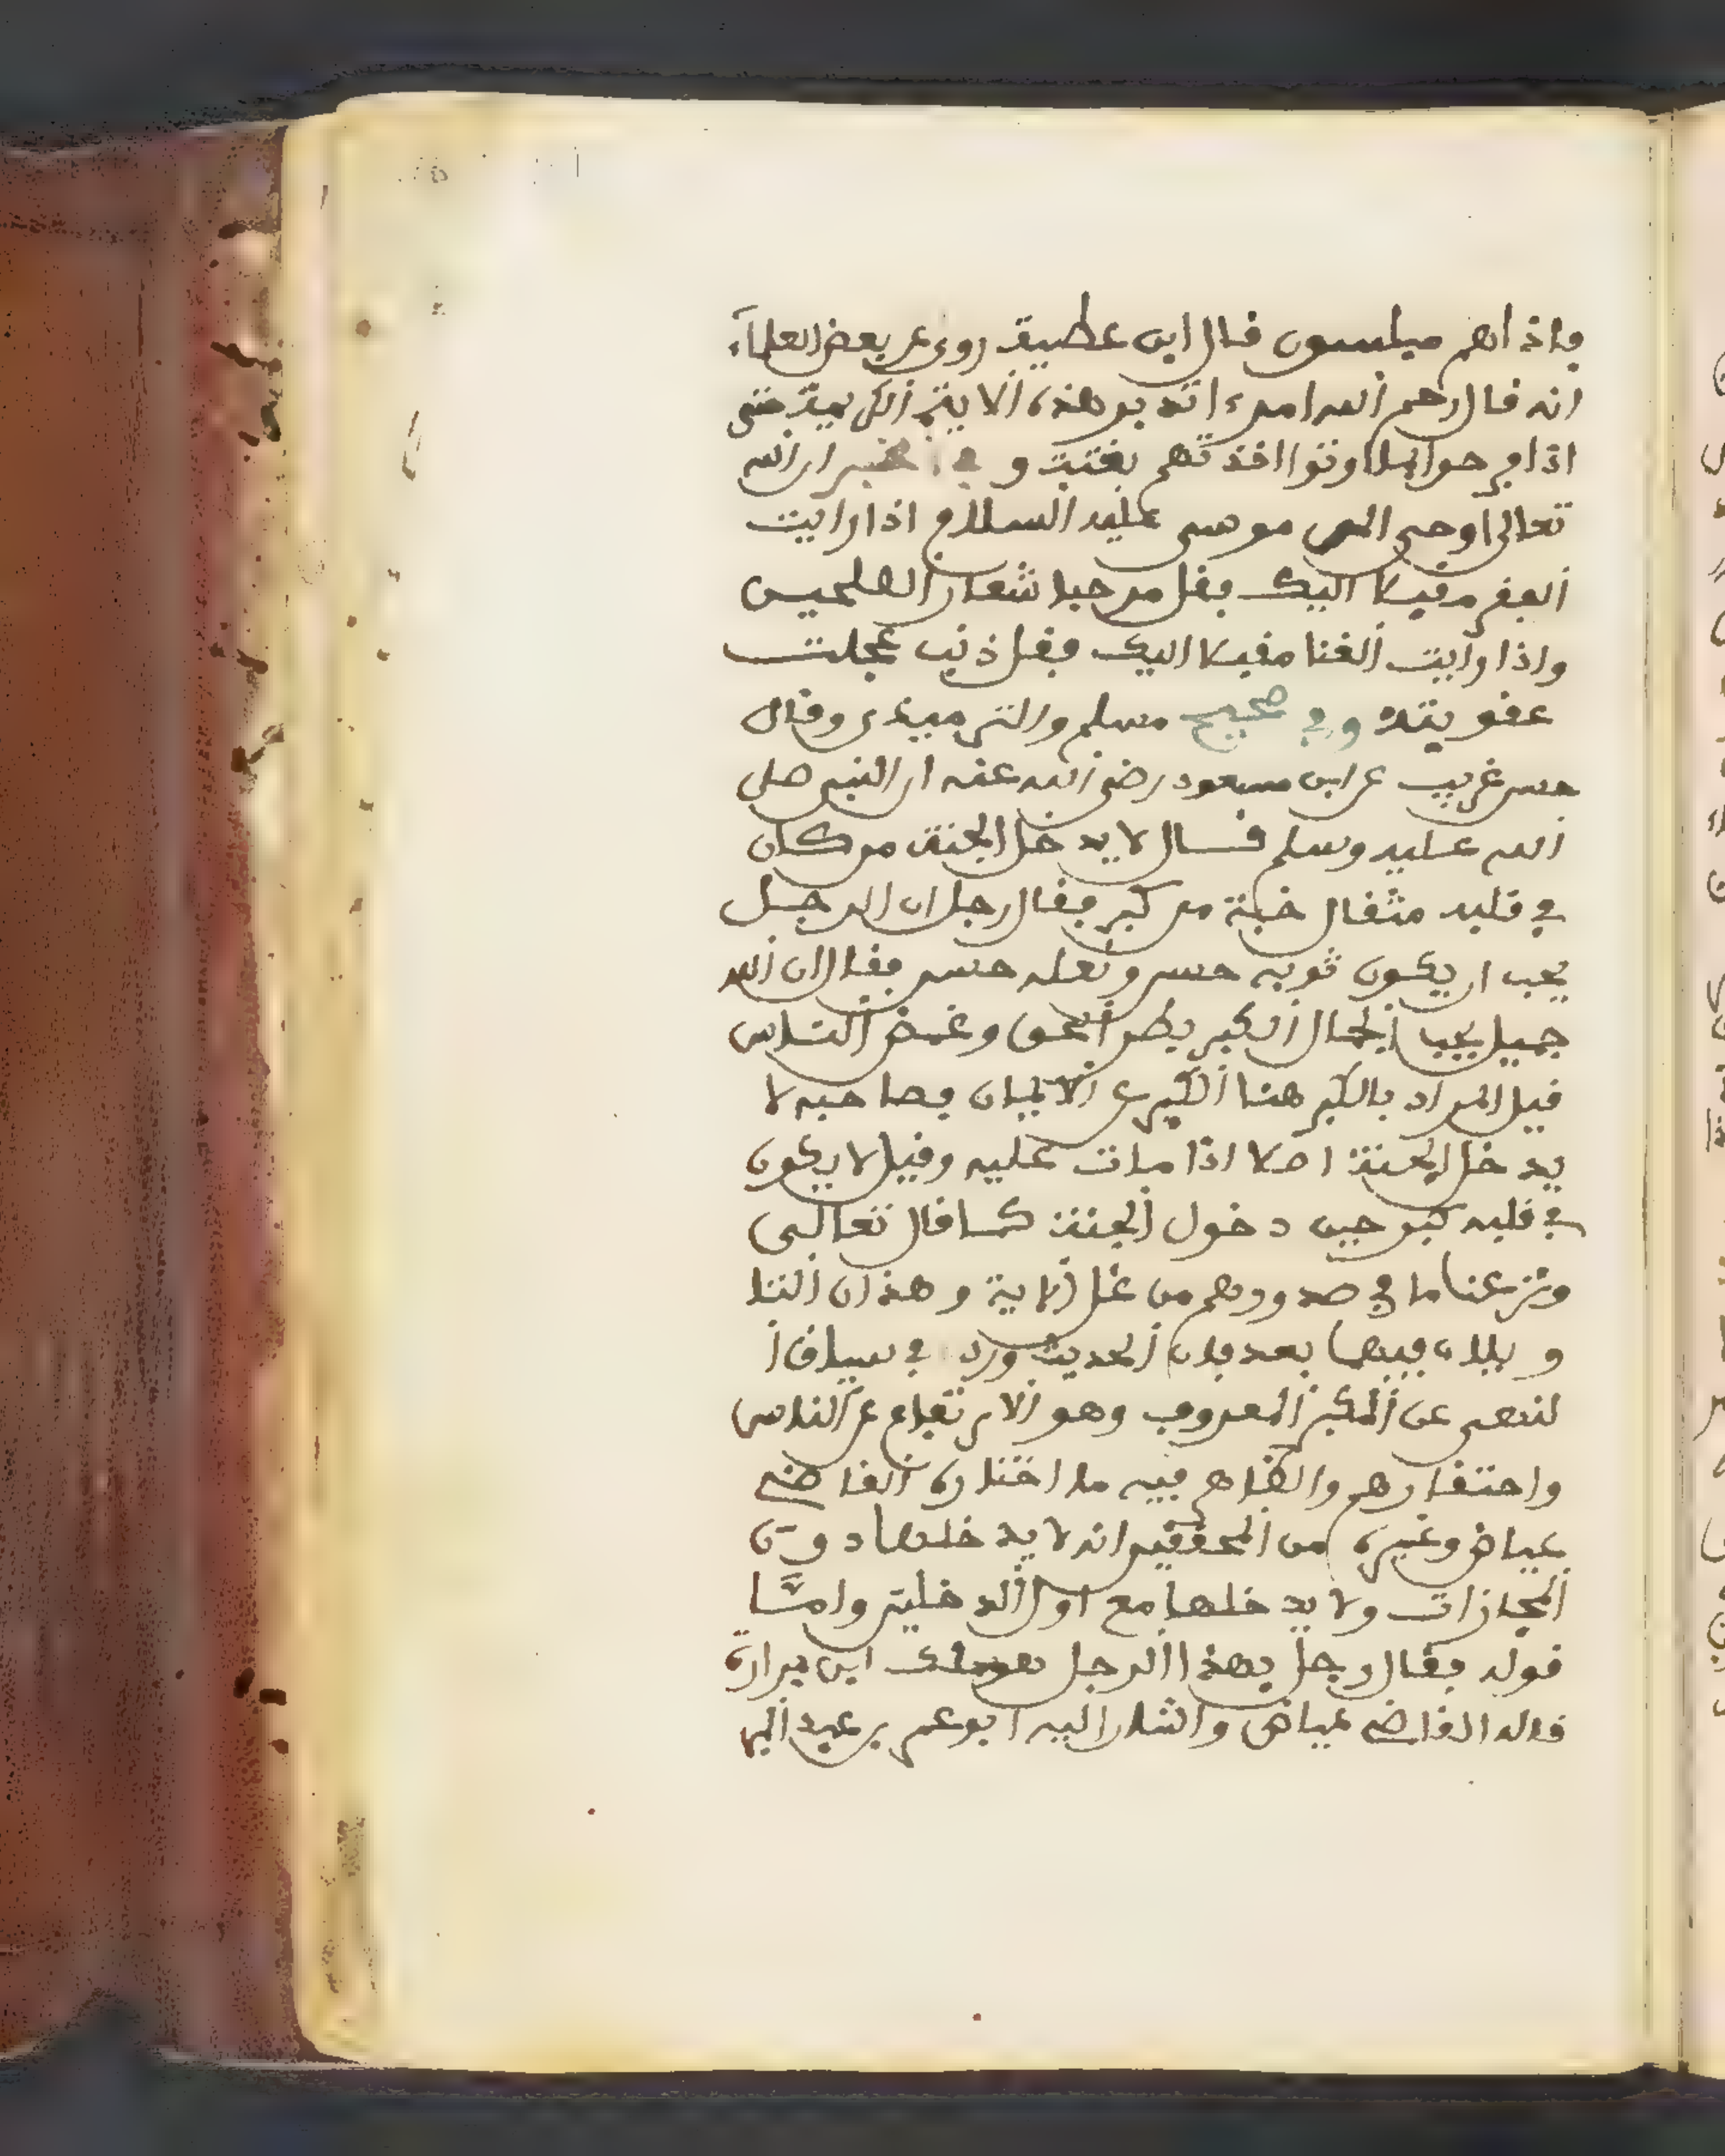 فإذا هم مبلسون قال ابن عطية روي عن بعض العلماء
انه قال رحم الله امرء اتدبر هذه الاية الكريمة حتى
اذا فرحوا بما اوتوا اخذتهم بغتة وفي الخبر ان الله
تعالى اوحى الى موسى عليه السلام اذا رايت
الفقر مقبلا اليك فقل مرحبا شعار الصلحين
واذا رايت الغنا مقبلا اليك فقل ذنب عجلت
عقوبته وفي صحيح مسلم والترميذي وقال
حسن غريب عن ابن مسعود رضي الله عنه ان النبي صلى
الله عليه وسلم قال لا يدخل الجنة من كان
في قلبه مثقال حبة من كبر فقال رجل ان الرجل
يحب ان يكون ثوبه حسن ونعله حسن فقال ان الله
جميل يحب الجمال الكبر بطر الحق وغمض الناس
قيل المراد بالكبر هنا الكبر عن الايمان فصاحبه لا
يدخل الجنة اصلا اذا مات عليه وقيل لا يكون
في قلبه كبر حين دخول الجنة كما قال تعالى
ونزعنا ما في صدورهم من غل الاية وهذان التا
ويلان فيهما بعد فان الحديث ورد في سياق ا
لنهي عن الكبر المعروف وهو الارتفاع عن الناس
واحتقارهم والظاهر فيه ما اختاره القاضي
عياض وغيره من المحققين انه لا يدخلها دون
المجازات ولا يدخلها مع اول الدخلين واما
قوله فقال رجل فهذا الرجل هو ملك ابن مرارة
قاله القاضي عياض واشار اليه ابو عمر بن عبد البر